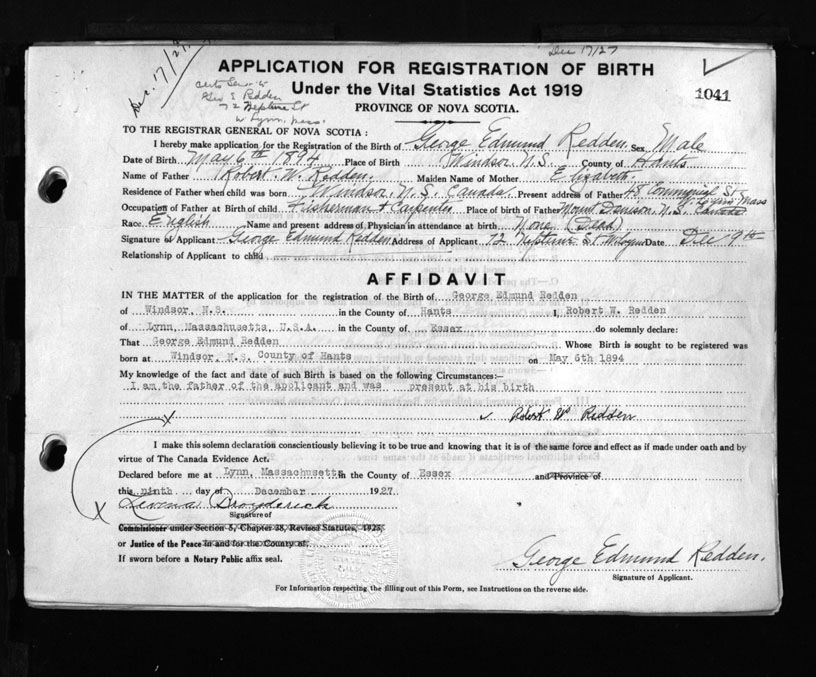 Dec 17/27
Dec. 17/27
APPLICATION FOR REGISTRATION OF BIRTH
Under the Vital Statistics Act 1919
1041
PROVINCE OF NOVA SCOTIA.
Geo E Redden
72 Neptune St
W Lynn, Mass.
TO THE REGISTRAR GENERAL OF NOVA SCOTIA :
I hereby make application for the Registration of the Birth of George Edmund Redden. Sex Male
Date of Birth May 6th 1894 Place of Birth Windsor N.S. County of Hants
Name of Father Robert W. Redden. Maiden Name of Mother Elizabeth.
Residence of Father when child was born Windsor, N.S. Canada Present address of Father 48 St W. Lynn Mass
Occupation of Father at Birth of child Fisherman & Carpenter Place of birth of Father Mount Denson, N.S. Canada
Race English Name and present address of Physician in attendance at birth None (Dead)
Signature of Applicant George Edmund Redden Address of Applicant 72 Neptune St W Lynn Date Dec 9th
Relationship of Applicant to child
AFFIDAVIT
IN THE MATTER of the application for the registration of the Birth of George Edmund Redden
of Windsor, N.S. in the County of Hants I, Robert W. Redden
of Lynn, Massachusetts, U.S.A. in the County of Essex do solemnly declare:
That George Edmund Redden Whose Birth is sought to be registered was
born at Windsor, N.S. County of Hants on May 6th 1894
My knowledge of the fact and date of such Birth is based on the following Circumstances:—
I am the father of the applicant and was present at his birth
x Robert W. Redden
I make this solemn declaration conscientiously believing it to be true and knowing that it is of the same force and effect as if made under oath and by
virtue of The Canada Evidence Act.
Declared before me at Lynn, Massachusetts in the County of Essex and Province of
this ninth day of December 1927
Signature of
Commissioner under Section 5, Chapter 38, Revised Statutes, 1923,
or Justice of the Peace in and for the County of
If sworn before a Notary Public affix seal.
George Edmund Redden.
Signature of Applicant.
For Information respecting the filling out of this Form, see Instructions on the reverse side.